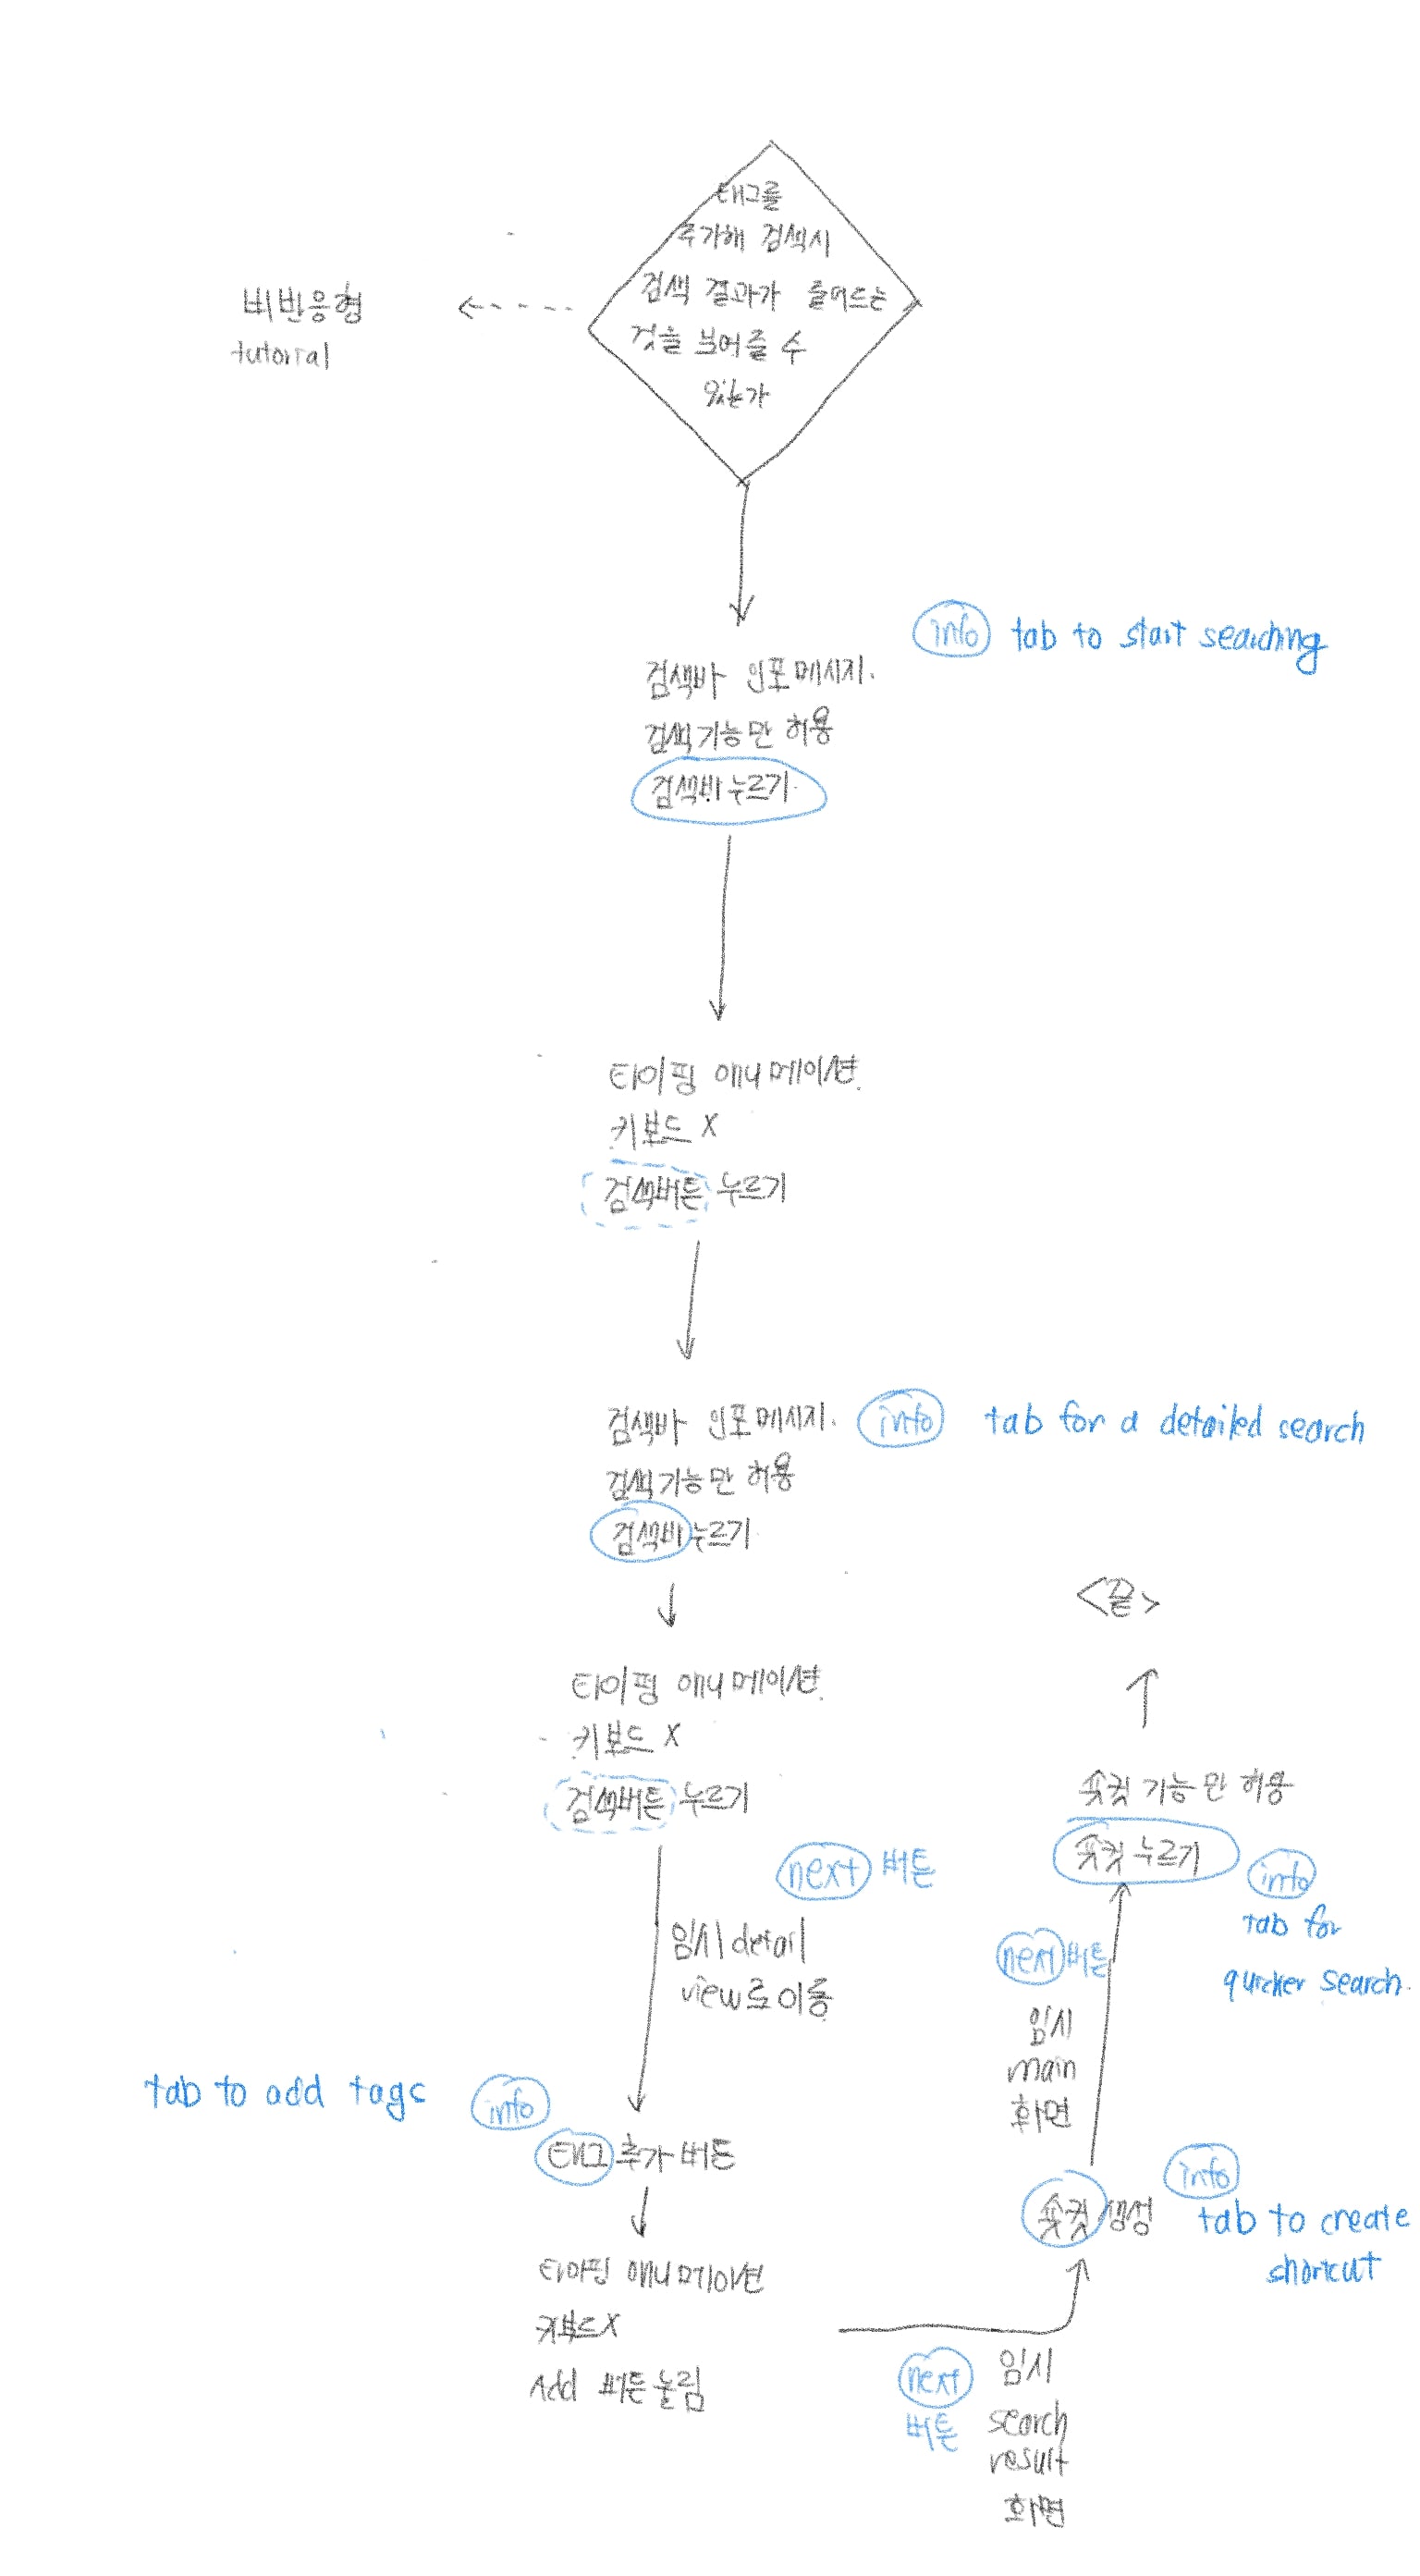 태그를
추가해 검색시
검색 결과가 줄어드는
것을 보여줄 수
있는가
비반응형
tutorial
info tab to start searching
검색바 인포메시지.
검색기능만 허용
검색바 누르기
타이핑 애니메이션.
키보드 X
검색버튼 누르기
검색바 인포메시지. info tab for a detailed search
검색기능만 허용
검색바 누르기
타이핑 애니메이션.
키보드 X
검색버튼 누르기
next 버튼
임시 detail
view로 이동
tab to add tags info
태그 추가 버튼
타이핑 애니메이션
키보드 X
Add 버튼 눌림
next
버튼
임시
search
result
화면
숏컷 생성
info
tab to create
shortcut
next 버튼
임시
main
화면
숏컷 기능만 허용
숏컷 누르기
info
tab for
quicker search.
<끝>